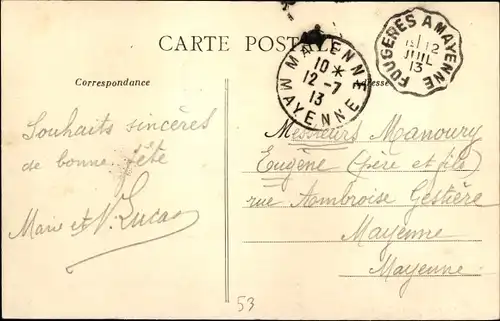 CARTE POSTALE
Correspondance
Adresse
MAYENNE
10*
12-7
13
MAYENNE
FOUGERES A MAYENNE
12
JUIL
13
Souhaits sincères
de bonne fête
Marie et V. Lucas
Messieurs Manoury
Eugène (père et fils)
rue Ambroise Gestière
Mayenne
Mayenne
53